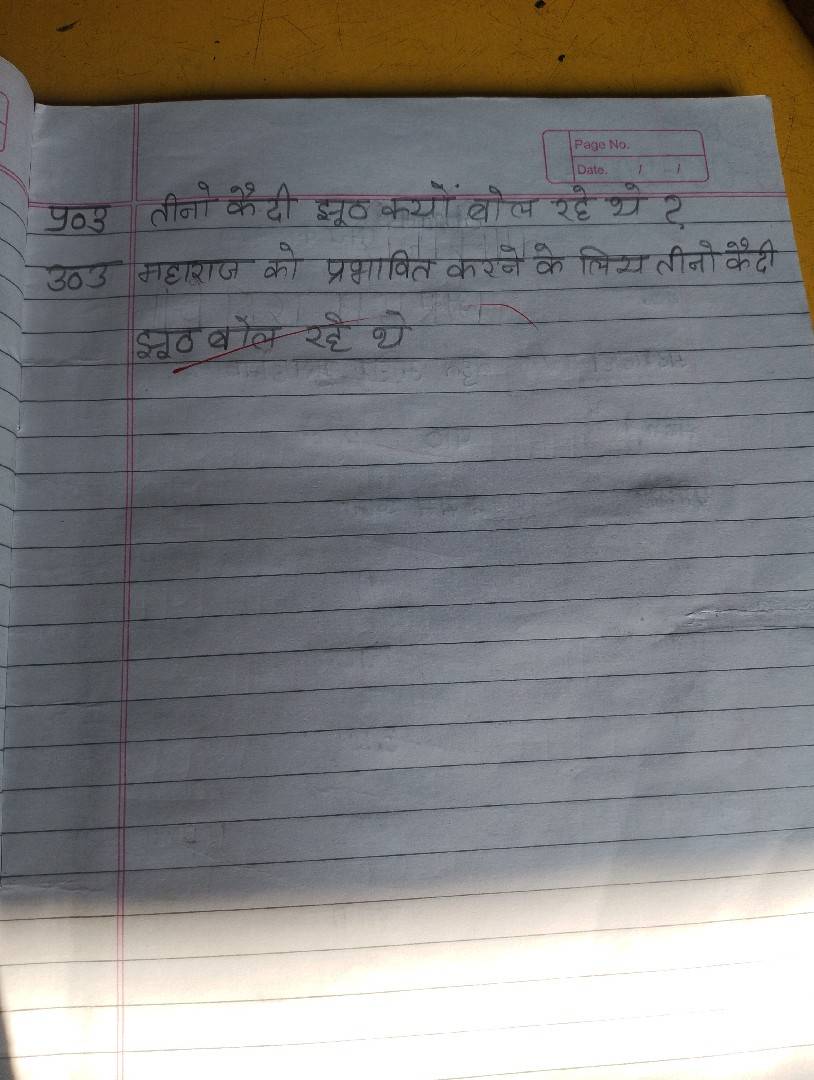 Page No.
Date. / /
प्र०3 तीनो कैदी झूठ कयों बोल रहे थे ?
उ०3 महाराज को प्रभावित करने के लिय तीनो कैदी
झूठ बोल रहे थे